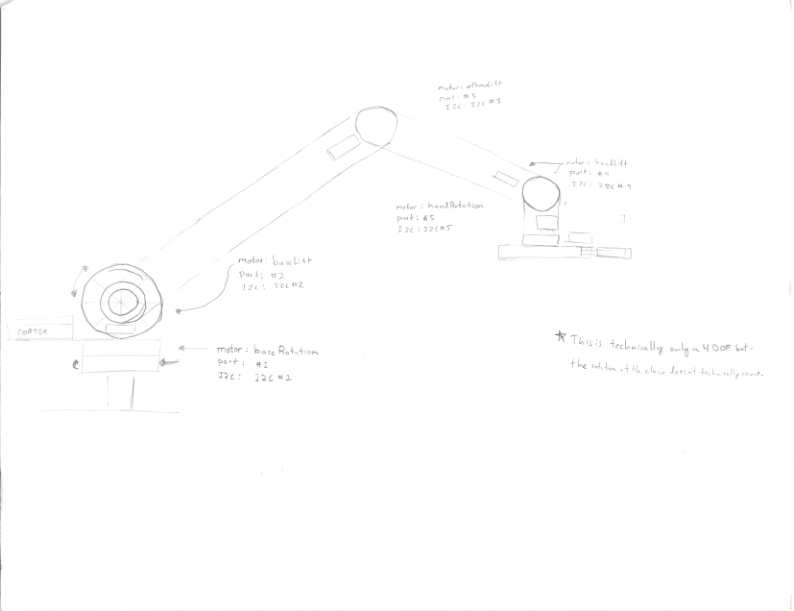 motor: elbowLift
port: #3
I2C: I2C #3
motor: handLift
port: #4
I2C: I2C #4
motor: handRotation
port: #5
I2C: I2C #5
motor: baseLift
port: #2
I2C: I2C #2
CORTEX
motor: baseRotation
port: #1
I2C: I2C #1
★ This is technically only a 4 DOF bot-
the rotation of the claw doesn't technically count.